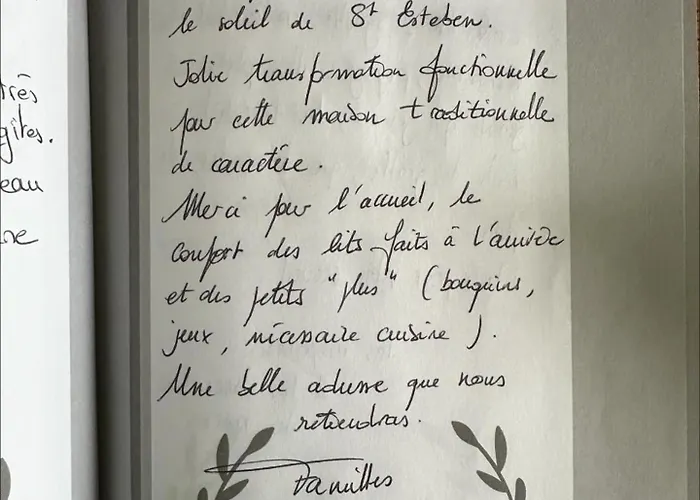 très
gîtes.
eau
ne
le soleil de St Esteben.
Jolie transformation fonctionnelle
pour cette maison traditionnelle
de caractère.
Merci pour l'accueil, le
confort des lits faits à l'arrivée
et des petits "plus" (bouquins,
jeux, nécessaire cuisine).
Une belle adresse que nous
retiendrons.
Familles